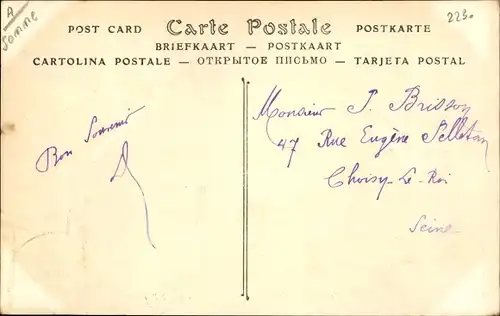 A
Somme
223.
POST CARD Carte Postale POSTKARTE
BRIEFKAART — POSTKAART
CARTOLINA POSTALE — ОТКРЫТОЕ ПИСЬМО — TARJETA POSTAL
Bon Souvenir
Monsieur P. Brisson
47 Rue Eugène Pelletan
Choisy-Le-Roi
Seine